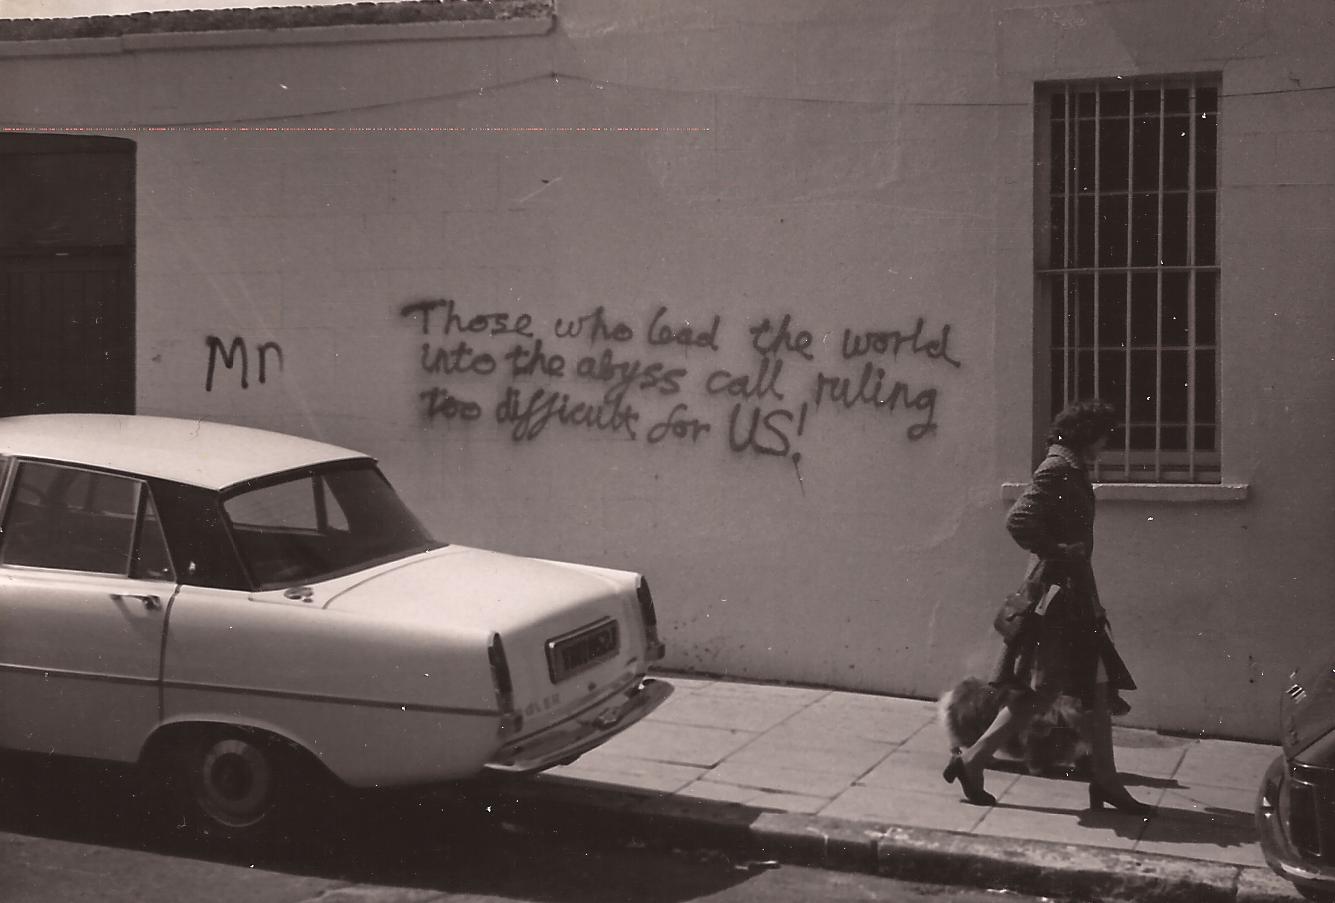 Mn
Those who lead the world
into the abyss call ruling
too difficult for US!